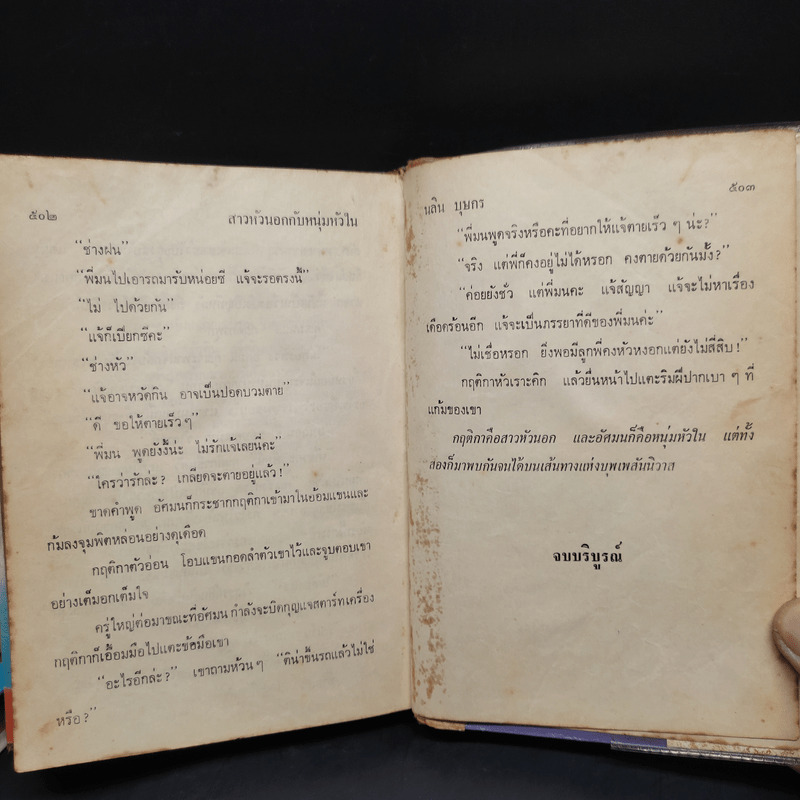 ๕๐๒ สาวหัวนอกกับหนุ่มหัวใน
“ช่างฝน”
“พี่มนไปเอารถมารับหน่อยซี แจ้จะรอตรงนี้”
“ไม่ ไปด้วยกัน”
“แจ้ก็เปียกซีคะ”
“ช่างหัว”
“แจ้อาจหวัดกิน อาจเป็นปอดบวมตาย”
“ดี ขอให้ตายเร็วๆ”
“พี่มน พูดยังงี้น่ะ ไม่รักแจ้เลยนี่คะ”
“ใครว่ารักล่ะ? เกลียดจะตายอยู่แล้ว!”
ขาดคำพูด อัศมนก็กระชากกฤติกาเข้ามาในอ้อมแขนและ
ก้มลงจุมพิตหล่อนอย่างดุเดือด
กฤติกาตัวอ่อน โอบแขนกอดลำตัวเขาไว้และจูบตอบเขา
อย่างเต็มอกเต็มใจ
ครู่ใหญ่ต่อมาขณะที่อัศมน กำลังจะบิดกุญแจสตาร์ทเครื่อง
กฤติกาก็เอื้อมมือไปแตะข้อมือเขา
“อะไรอีกล่ะ?” เขาถามห้วนๆ “ติน่าขึ้นรถแล้วไม่ใช่
หรือ?”
นลิน บุษกร ๕๐๓
“พี่มนพูดจริงหรือคะที่อยากให้แจ้ตายเร็ว ๆ น่ะ?”
“จริง แต่พี่ก็คงอยู่ไม่ได้หรอก คงตายด้วยกันมั้ง?”
“ค่อยยังชั่ว แต่พี่มนคะ แจ้สัญญา แจ้จะไม่หาเรื่อง
เดือดร้อนอีก แจ้จะเป็นภรรยาที่ดีของพี่มนค่ะ”
“ไม่เชื่อหรอก ยิ่งพอมีลูกพี่คงหัวหงอกแต่ยังไม่สี่สิบ!”
กฤติกาหัวเราะคิก แล้วยื่นหน้าไปแตะริมฝีปากเบา ๆ ที่
แก้มของเขา
กฤติกาคือสาวหัวนอก และอัศมนก็คือหนุ่มหัวใน แต่ทั้ง
สองก็มาพบกันจนได้บนเส้นทางแห่งบุพเพสันนิวาส
จบบริบูรณ์